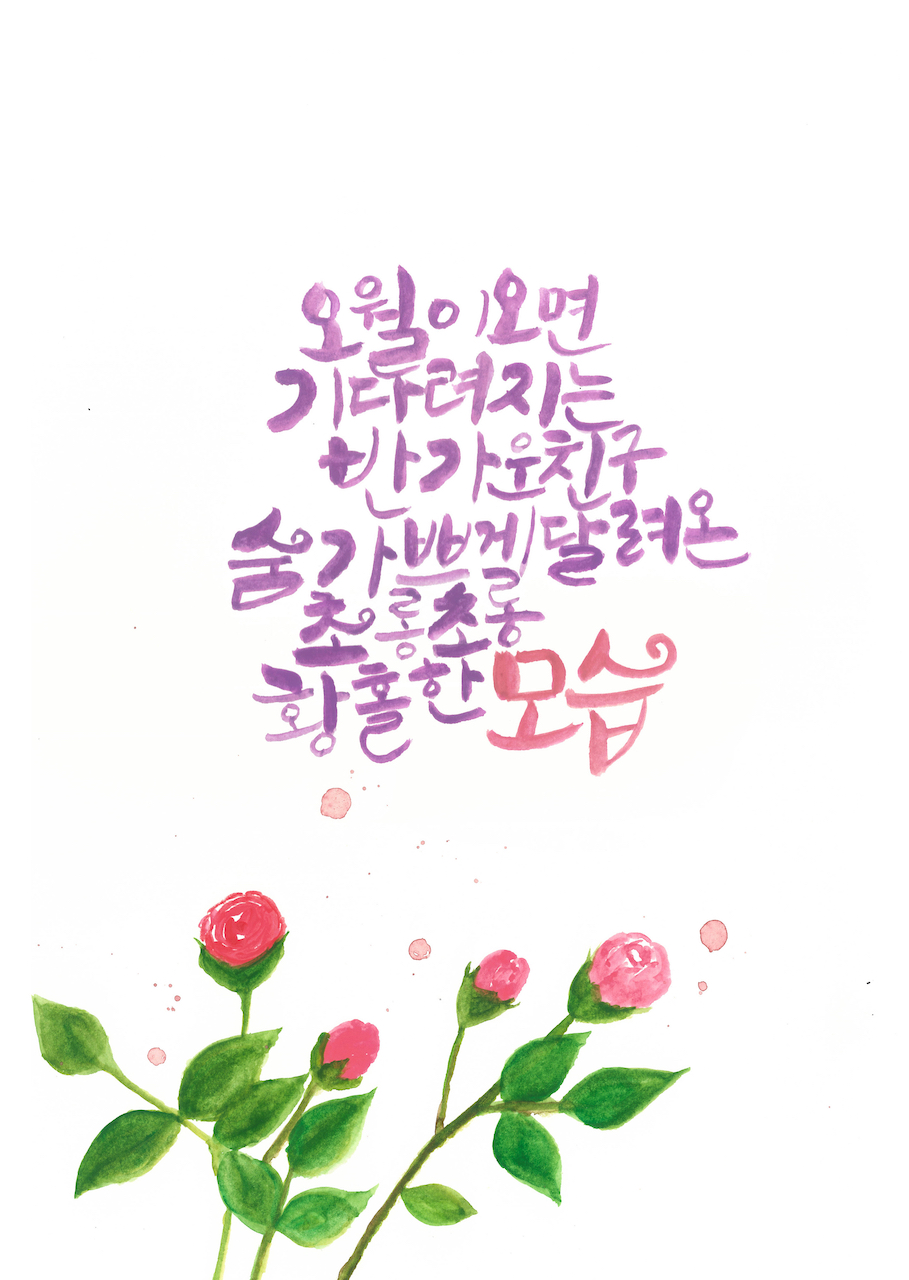 오월이오면
기다려지는
반가운친구
숨가쁘게달려온
초롱초롱
황홀한모습